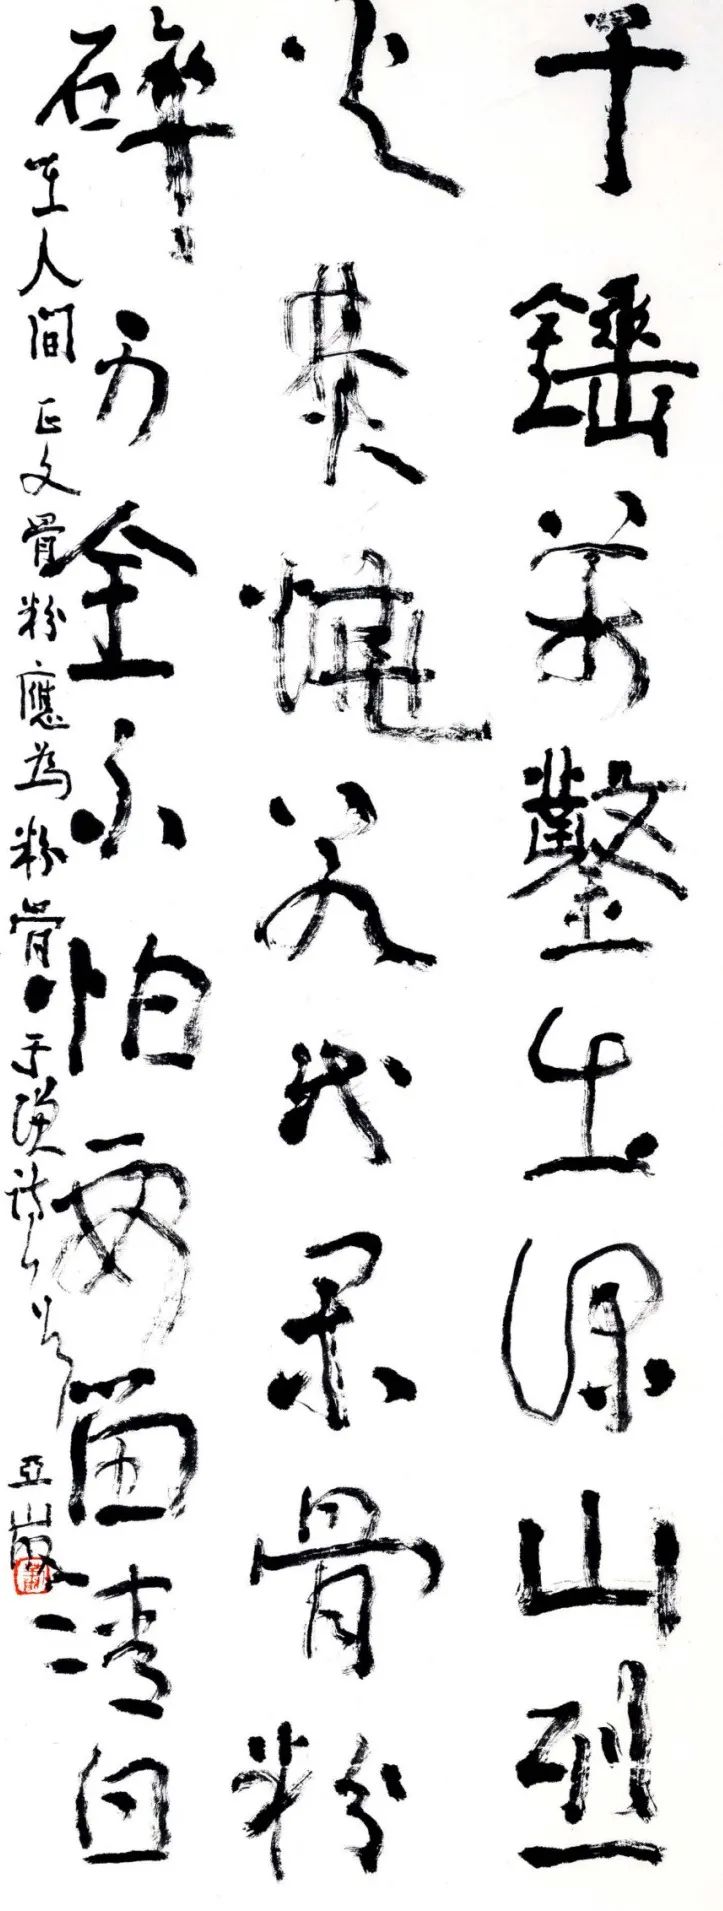 千錘萬鑿出深山烈
火焚燒若等閑骨粉
碎身全不怕要留清白
在人間 正文骨粉應為粉骨 于謙詩 亞